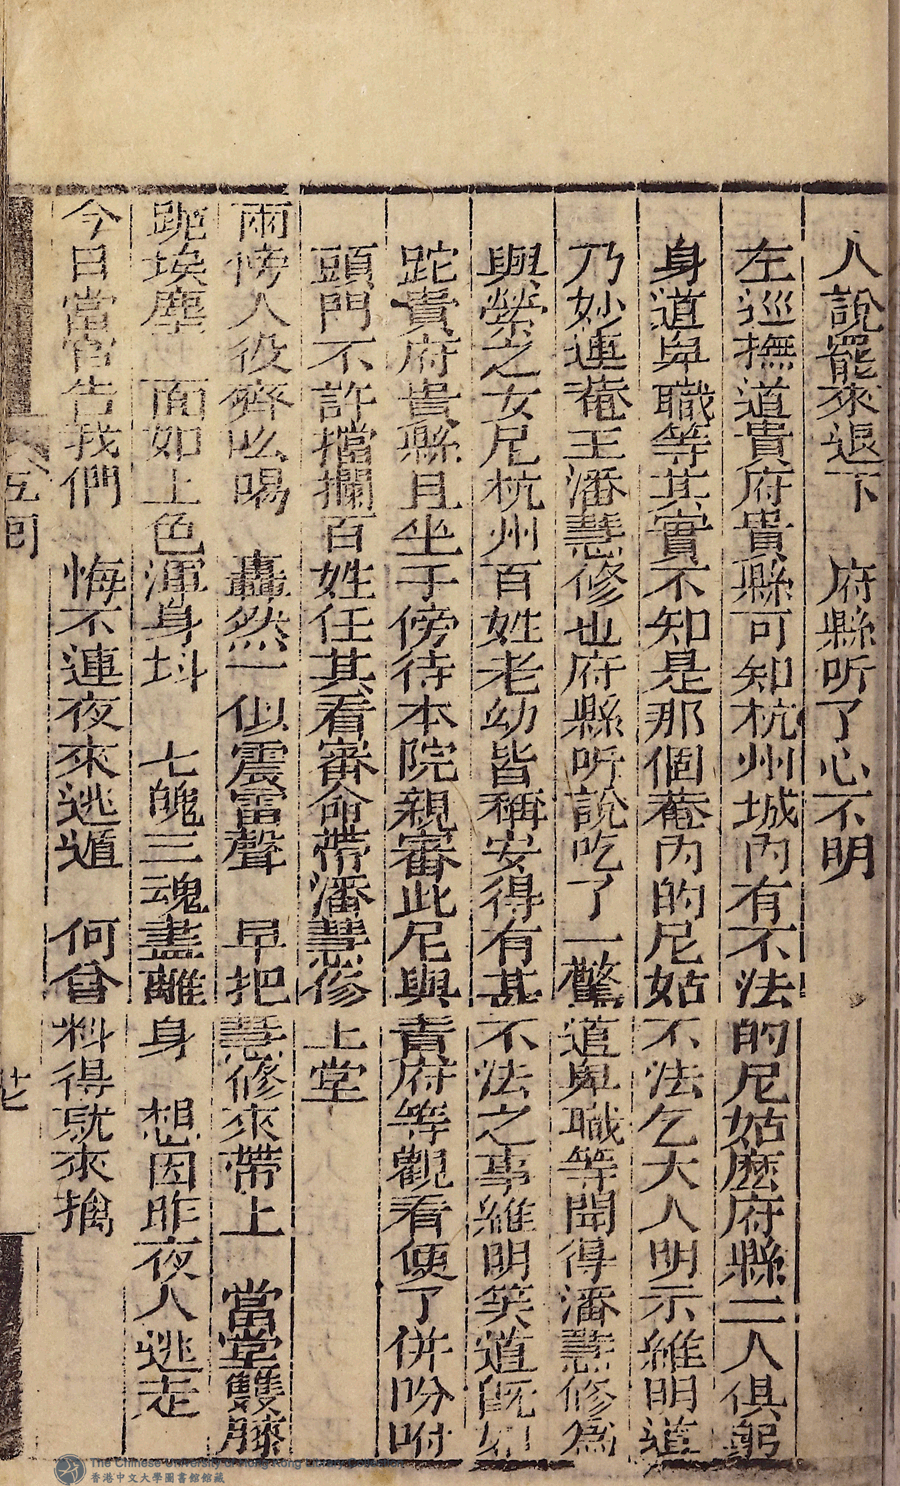 人說罷來退下　府縣听了心不明
左巡撫道貴府貴縣可知杭州城內有不法的尼姑麽府縣二人俱躬
身道卑職等其實不知是那個菴內的尼姑不法乞大人明示維明道
乃妙蓮菴王潘慧修也府縣听說吃了一驚道卑職等聞得潘慧修為
與榮之女尼杭州百姓老幼皆稱安得有甚不法之事維明笑道既如
跎貴府貴縣且坐于傍待本院親審此尼與青府等觀看便了併吩咐
頭門不許擋攔百姓任其看審命帶潘慧修上堂
兩傍人役齊吆喝　轟然一似震雷聲　早把慧修來帶上　當堂雙膝
跪埃塵　面如土色渾身抖　七魄三魂盡離身　想因昨夜人逃走
今日當官告我們　悔不連夜來逃遁　何曾料得就來擒
五回
廿七
The Chinese University of Hong Kong Library
香港中文大學圖書館館藏